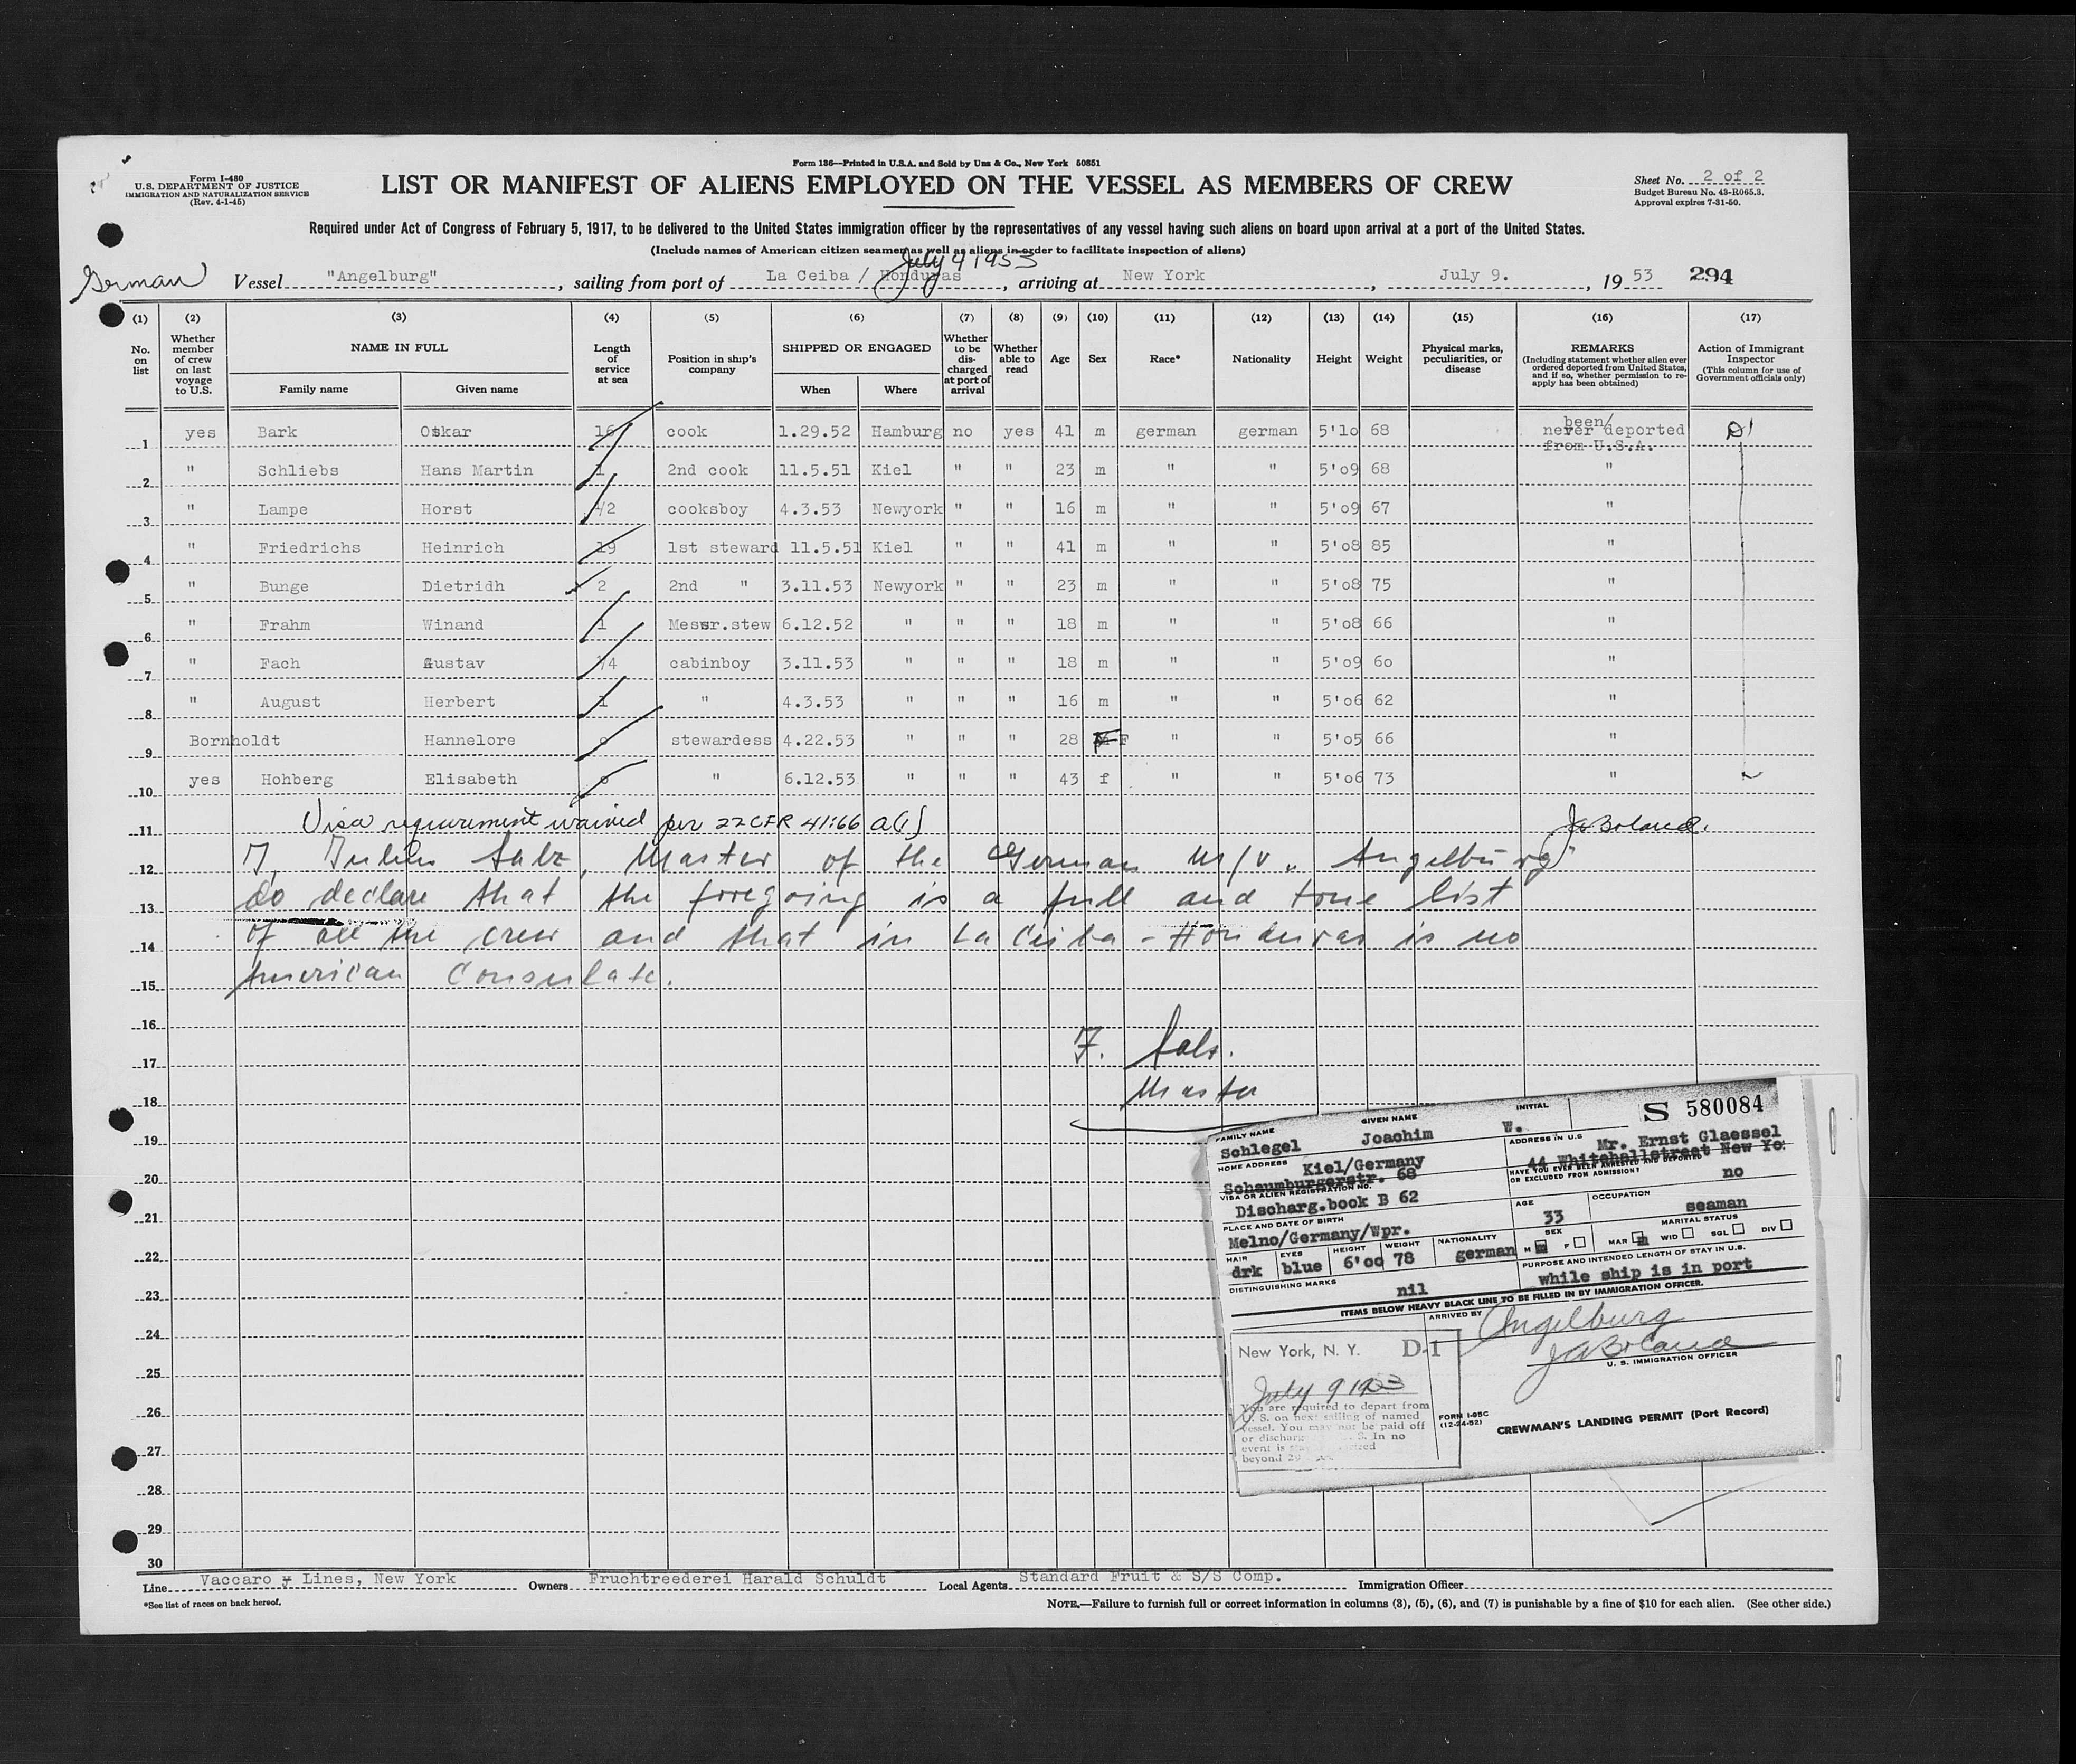 Form 136—Printed in U.S.A. and Sold by Unz & Co., New York 50851
Form I-480
U.S. DEPARTMENT OF JUSTICE
IMMIGRATION AND NATURALIZATION SERVICE
(Rev. 4-1-45)
LIST OR MANIFEST OF ALIENS EMPLOYED ON THE VESSEL AS MEMBERS OF CREW
Sheet No. 2 of 2
Budget Bureau No. 43-R065.3.
Approval expires 7-31-50.
Required under Act of Congress of February 5, 1917, to be delivered to the United States immigration officer by the representatives of any vessel having such aliens on board upon arrival at a port of the United States.
(Include names of American citizen seamen as well as aliens in order to facilitate inspection of aliens)
July 4 1953
German Vessel "Angelburg", sailing from port of La Ceiba / Honduras, arriving at New York, July 9., 19 53 294
(1) (2) (3) (4) (5) (6) (7) (8) (9) (10) (11) (12) (13) (14) (15) (16) (17)
No. on list Whether member of crew on last voyage to U.S. NAME IN FULL Family name Given name Length of service at sea Position in ship's company SHIPPED OR ENGAGED When Where Whether to be discharged at port of arrival Whether able to read Age Sex Race* Nationality Height Weight Physical marks, peculiarities, or disease REMARKS (Including statement whether alien ever ordered deported from United States, and if so, whether permission to reapply has been obtained) Action of Immigrant Inspector (This column for use of Government officials only)
1 yes Bark Oskar 16 cook 1.29.52 Hamburg no yes 41 m german german 5'10 68 never been/ deported from U.S.A. D1
2 " Schliebs Hans Martin 1 2nd cook 11.5.51 Kiel " " 23 m " " 5'09 68 "
3 " Lampe Horst 1/2 cooksboy 4.3.53 Newyork " " 16 m " " 5'09 67 "
4 " Friedrichs Heinrich 19 1st steward 11.5.51 Kiel " " 41 m " " 5'08 85 "
5 " Bunge Dietridh 2 2nd " 3.11.53 Newyork " " 23 m " " 5'08 75 "
6 " Frahm Winand 1 Messr.stew 6.12.52 " " " 18 m " " 5'08 66 "
7 " Fach Gustav 1/4 cabinboy 3.11.53 " " " 18 m " " 5'09 60 "
8 " August Herbert 1 " 4.3.53 " " " 16 m " " 5'06 62 "
9 Bornholdt Hannelore o stewardess 4.22.53 " " " 28 F " " 5'05 66 "
10 yes Hohberg Elisabeth o " 6.12.53 " " " 43 f " " 5'06 73 "
11 Visa requirement waived per 22 CFR 41.66 a(1) JA Boland.
12 I, Julius Salz, Master of the German M/V "Angelburg"
13 do declare that the foregoing is a full and true list
14 of all the crew and that in La Ceiba - Honduras is no
15 American Consulate.
16
17 J. Salz.
18 Master
19
20
21
22
23
24
25
26
27
28
29
30
S 580084
FAMILY NAME GIVEN NAME INITIAL
Schlegel Joachim W.
HOME ADDRESS
Kiel/Germany
Schaumburgerstr. 68
ADDRESS IN U.S
Mr. Ernst Glaessel
44 Whitehallstreet New Yo
VISA OR ALIEN REGISTRATION NO.
Discharg.book B 62
HAVE YOU EVER BEEN ARRESTED AND DEPORTED OR EXCLUDED FROM ADMISSION?
no
PLACE AND DATE OF BIRTH
Melno/Germany/Wpr.
AGE 33 OCCUPATION seaman
HAIR drk EYES blue HEIGHT 6'00 WEIGHT 78 NATIONALITY german
SEX M F MARITAL STATUS MAR WID SGL DIV
DISTINGUISHING MARKS
nil
PURPOSE AND INTENDED LENGTH OF STAY IN U.S.
while ship is in port
ITEMS BELOW HEAVY BLACK LINE TO BE FILLED IN BY IMMIGRATION OFFICER.
ARRIVED BY Angelburg
JA Boland
U. S. IMMIGRATION OFFICER
New York, N. Y. D-1
July 9 1953
You are required to depart from
U. S. on next sailing of named
vessel. You may not be paid off
or discharg S. In no
event is
beyond 29
FORM I-95C
(12-24-52)
CREWMAN'S LANDING PERMIT (Port Record)
Line Vaccaro Lines, New York Owners Fruchtreederei Harald Schuldt Local Agents Standard Fruit & S/S Comp. Immigration Officer
*See list of races on back hereof.
NOTE.—Failure to furnish full or correct information in columns (3), (5), (6), and (7) is punishable by a fine of $10 for each alien. (See other side.)